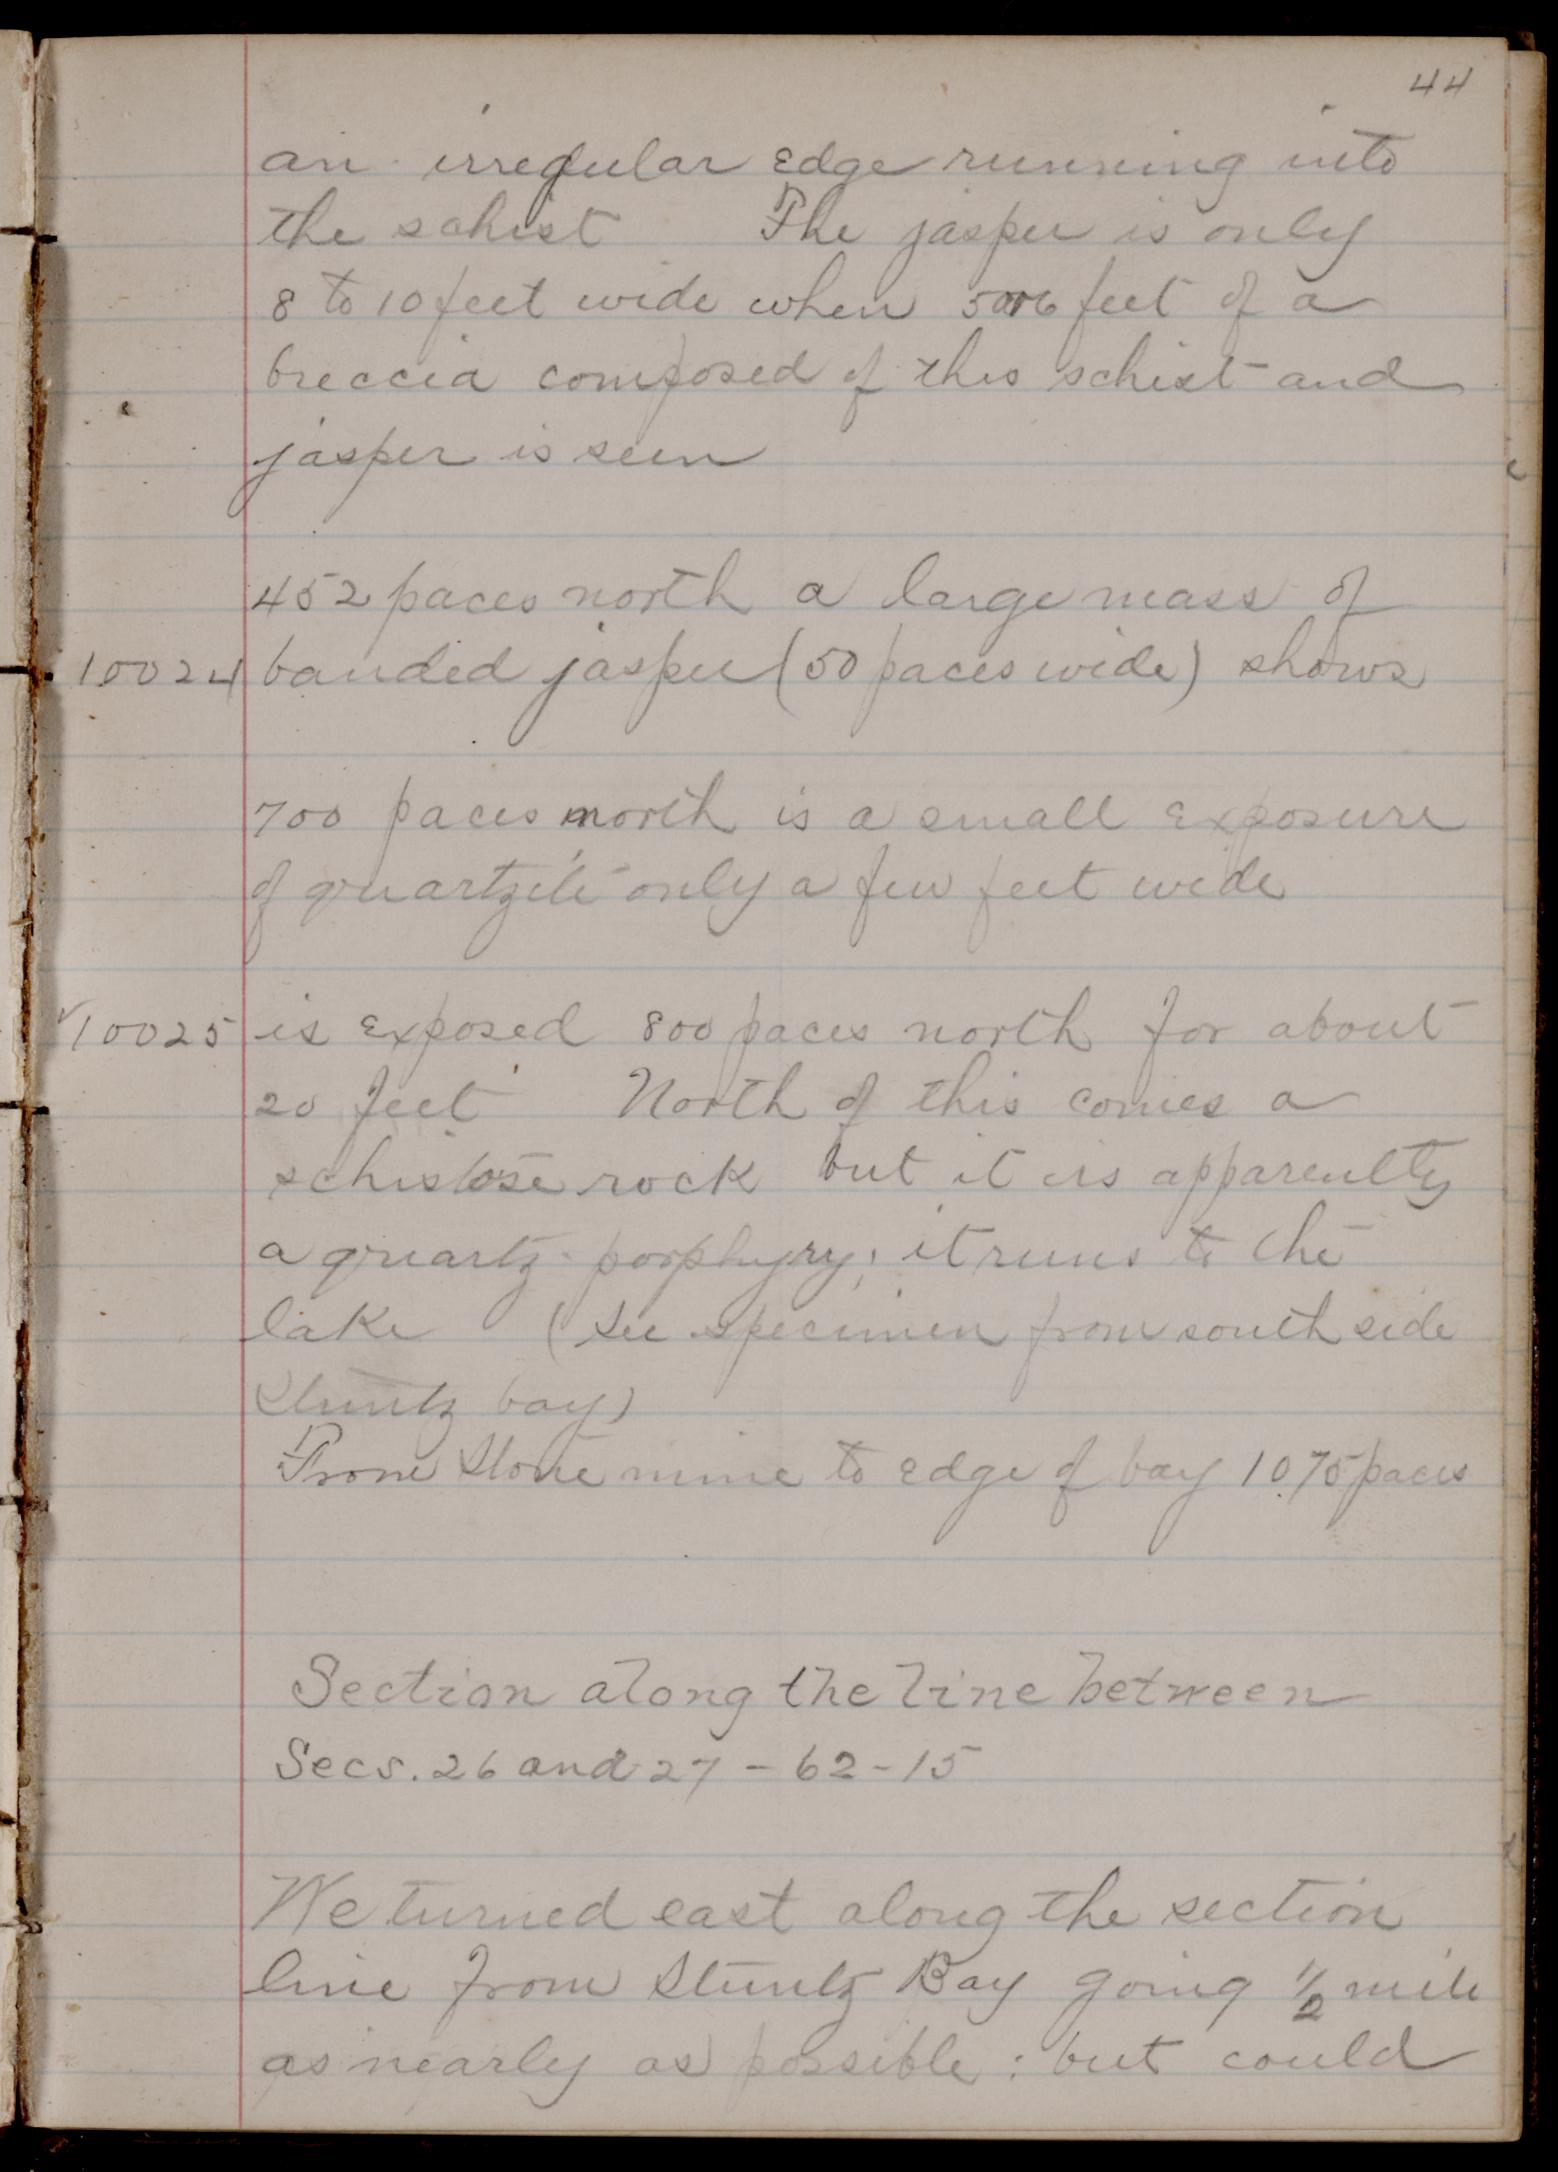 44
an irregular edge running into
the schist The jasper is only
8 to 10 feet wide when 5 or 6 feet of a
breccia composed of this schist and
jasper is seen
452 paces north a large mass of
10024 banded jasper (50 paces wide) shows
700 paces north is a small exposure
of quartzite only a few feet wide
10025 is exposed 800 paces north for about
20 feet North of this comes a
schistose rock but it is apparently
a quartz-porphyry; it runs to the
lake (see specimen from south side
Stuntz bay)
From Stone mine to edge of bay 1075 paces
Section along the line between
Secs. 26 and 27 - 62 - 15
We turned east along the section
line from Stuntz Bay going 1/2 mile
as nearly as possible: but could